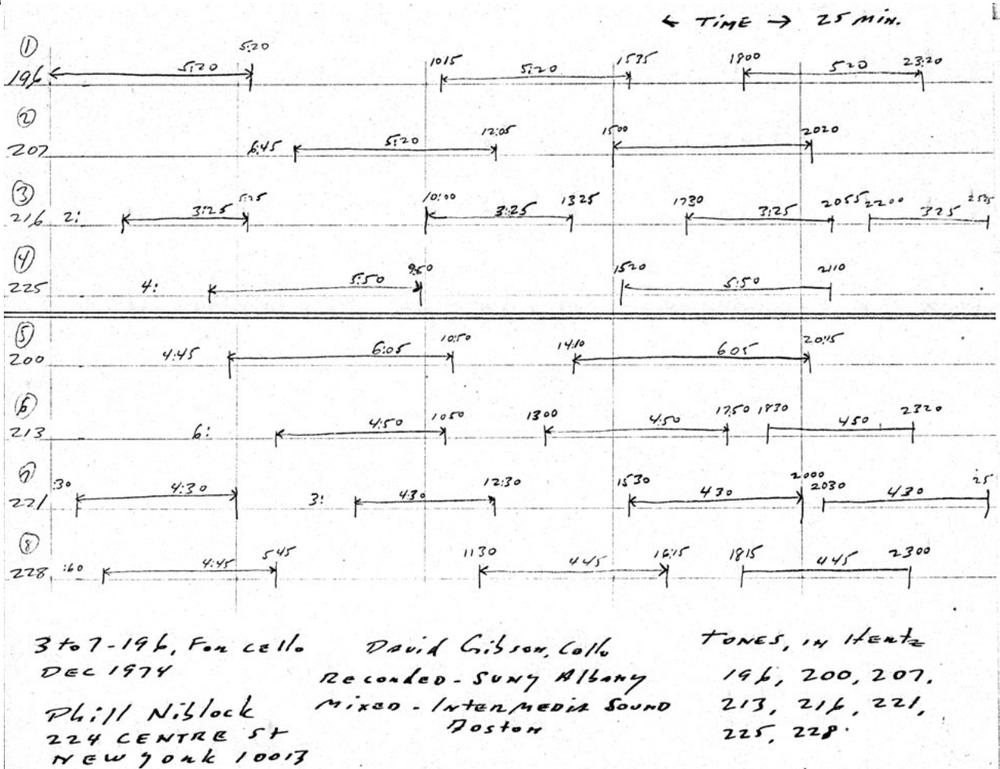 ← TIME → 25 MIN.
①
196 5:20 5:20 1015 5:20 1535 1800 520 23:20
②
207 6:45 5:20 12:05 1500 2020
③
216 2: 3:25 5:25 10:00 3:25 1325 1730 3:25 2055 2200 325 2525
④
225 4: 5:50 9:50 1520 5:50 2110
⑤
200 4:45 6:05 10:50 1410 605 20:15
⑥
213 6: 4:50 1050 1300 4:50 1750 1830 450 2320
⑦
221 :30 4:30 3: 430 12:30 1530 430 2000 2030 430 25
⑧
228 :60 4:45 545 1130 445 16:15 1815 445 2300
3 to 7-196, For cello
DEC 1974
Phill Niblock
224 CENTRE St
NEW York 10013
David Gibson, Cello
Recorded - SUNY Albany
Mixed - Intermedia Sound
Boston
TONES, IN Hertz
196, 200, 207,
213, 216, 221,
225, 228.